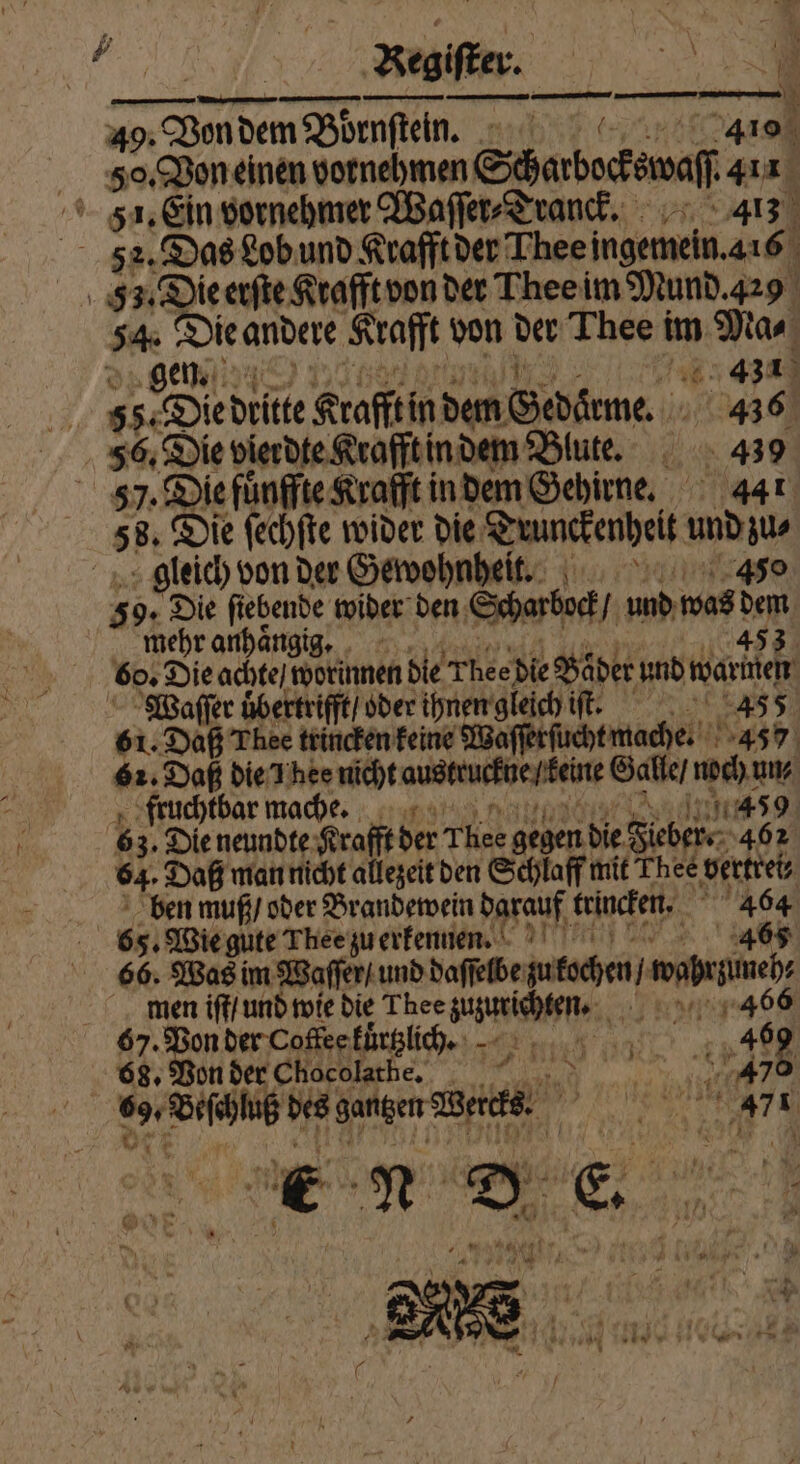 Regiſter.
49. Von dem Boͤrnſtein. 410
50. Von einen vornehmen Scharbockswaſſ. 411
51. Ein vornehmer Waſſer-Tranck. 413
52. Das Lob und Krafft der Thee ingemein. 416
53. Die erſte Krafft von der Thee im Mund. 429
54. Die andere Krafft von der Thee im Ma-
gen. 431
55. Die dritte Krafft in dem Gedaͤrme. 436
56. Die vierdte Krafft in dem Blute. 439
57. Die fuͤnffte Krafft in dem Gehirne. 441
58. Die ſechſte wider die Trunckenheit und zu-
gleich von der Gewohnheit. 450
59. Die ſiebende wider den Scharbock / und was dem
mehr anhaͤngig. 453
60. Die achte / worinnen die Thee die Baͤder und warmen
Waſſer uͤbertrifft / oder ihnen gleich iſt. 455
61. Daß Thee trincken keine Waſſerſucht mache. 457
62. Daß die Thee nicht austruckne / keine Galle / noch un-
fruchtbar mache. 459
63. Die neundte Krafft der Thee gegen die Fieber. 462
64. Daß man nicht allezeit den Schlaff mit Thee vertrei-
ben muß / oder Brandewein darauf trincken. 464
65. Wie gute Thee zu erkennen. 465
66. Was im Waſſer / und daſſelbe zu kochen / wahrzuneh-
men iſt / und wie die Thee zuzurichten. 466
67. Von der Coffee kuͤrtzlich. 469
68. Von der Chocolathe. 470
69. Beſchluß des gantzen Wercks. 471
E N D E.